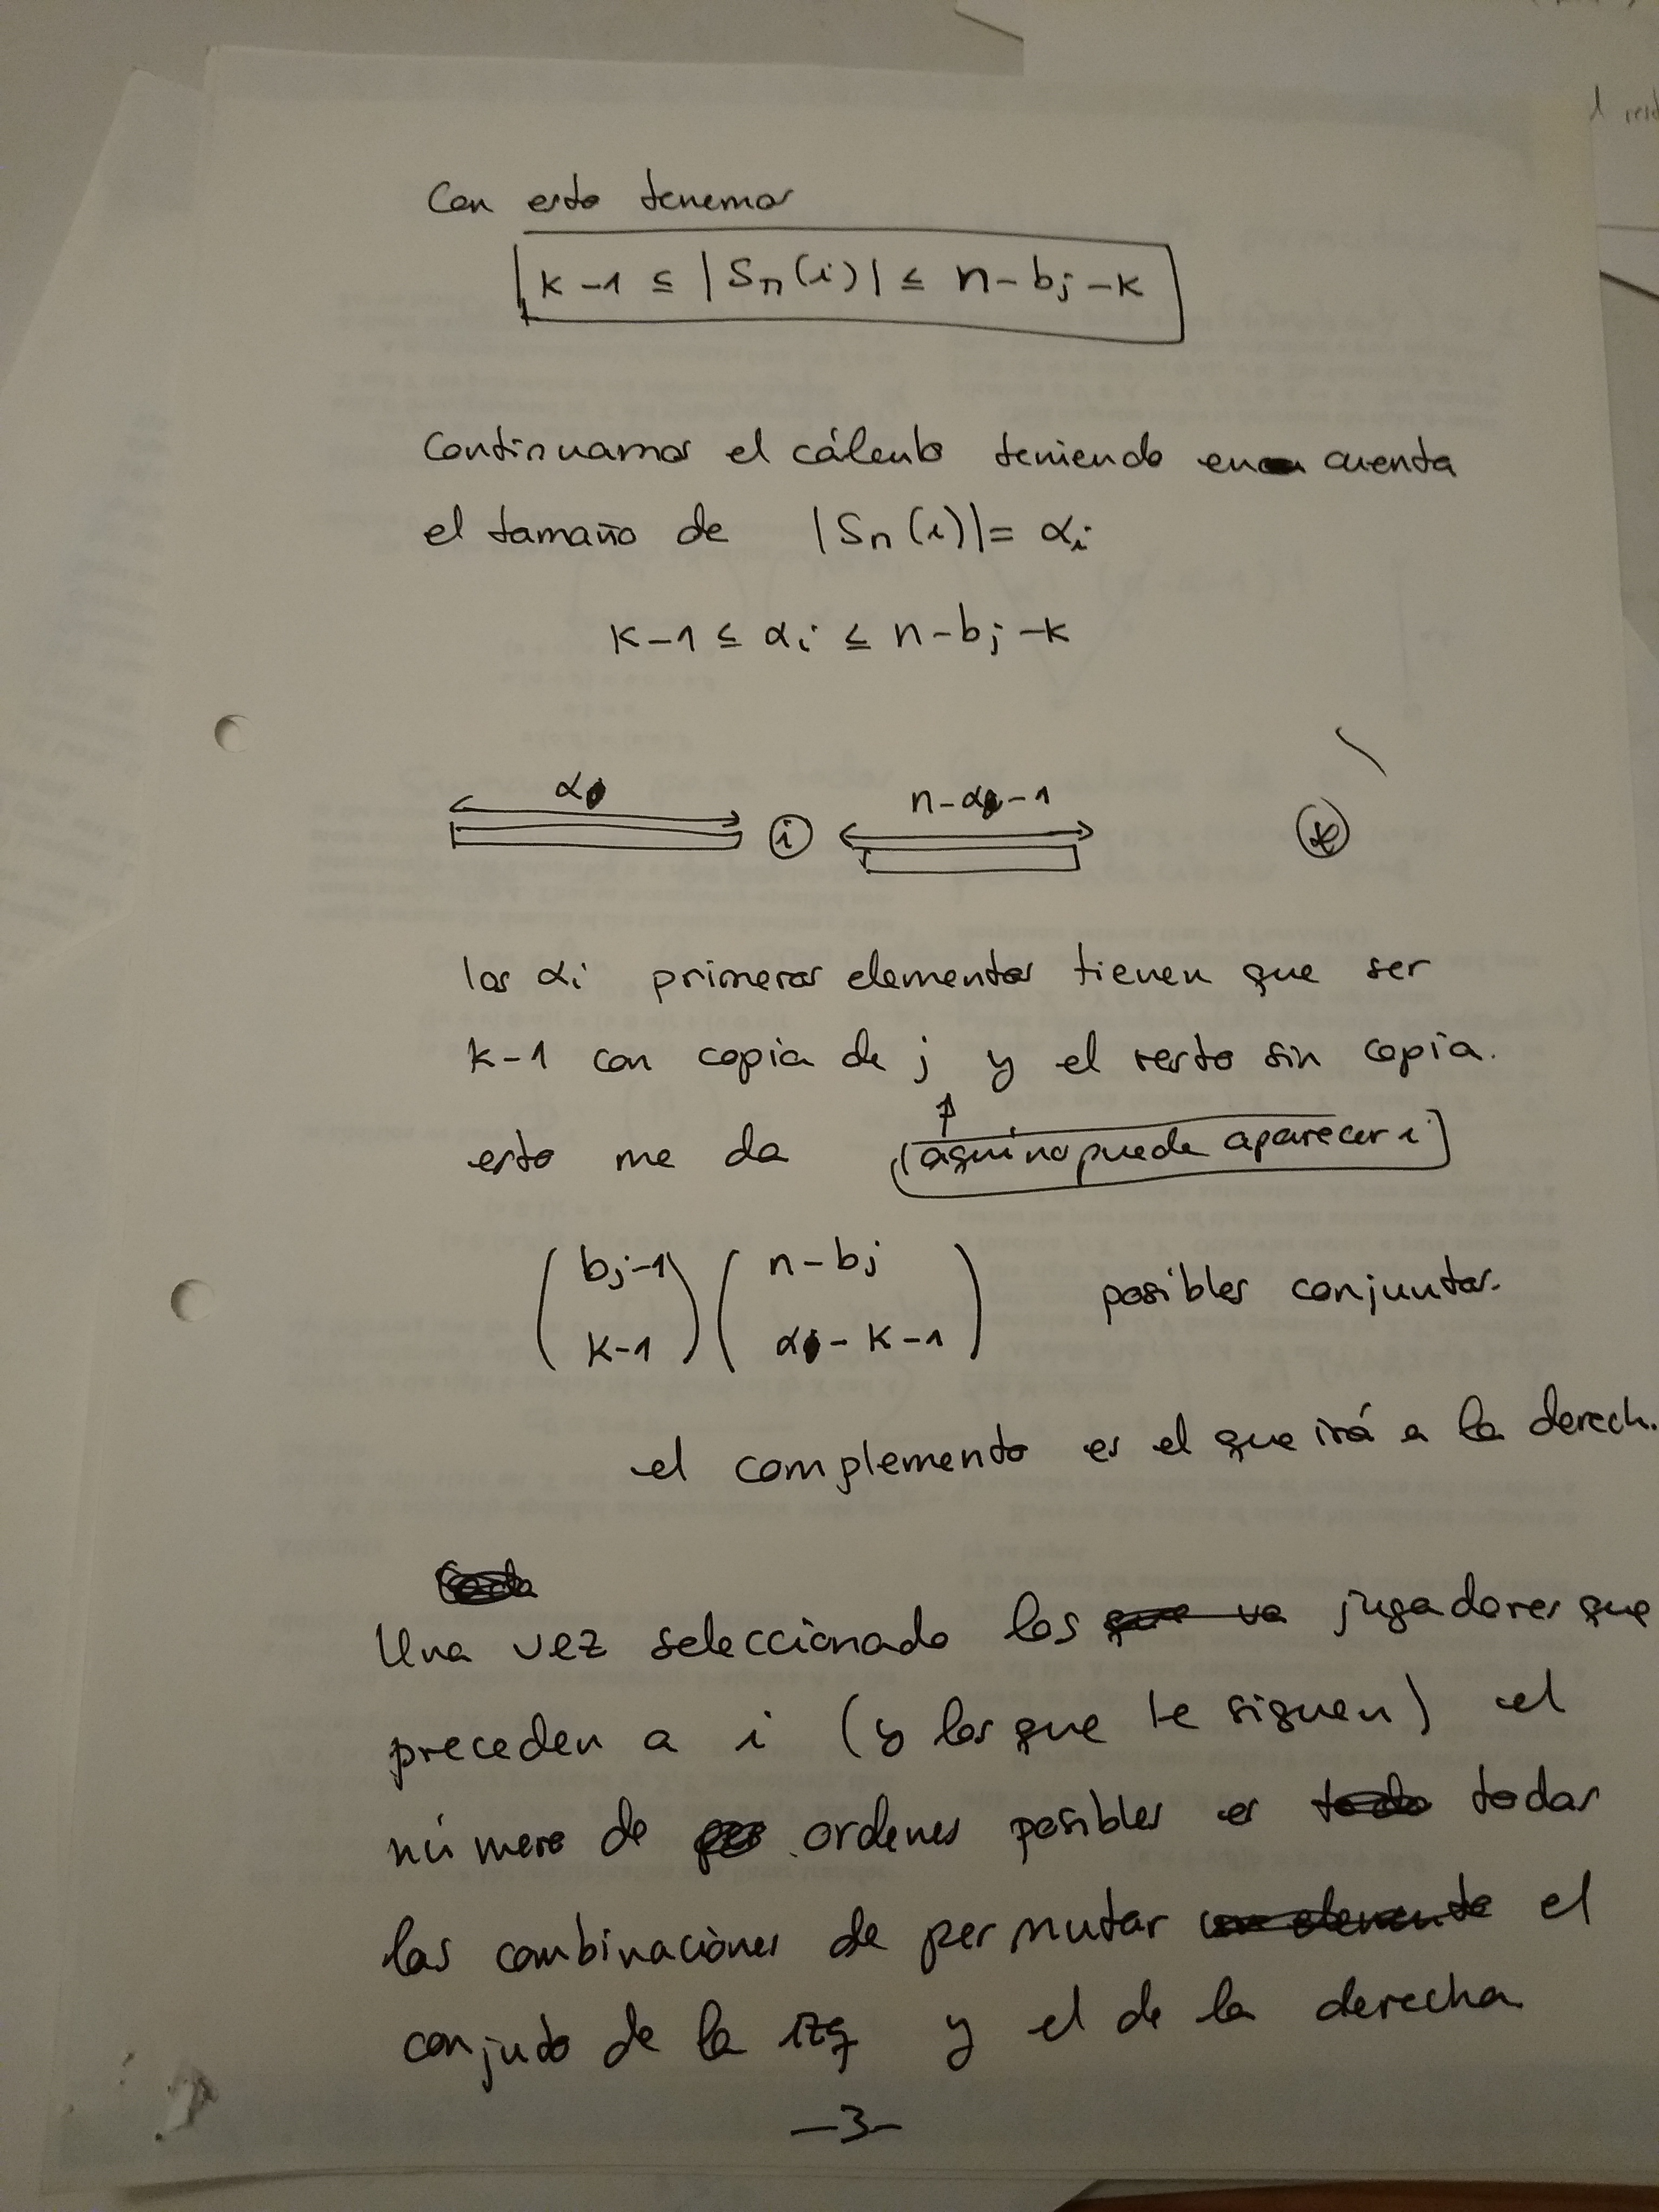 Con esto tenemos
k-1 ≤ |Sπ(i)| ≤ n-bj-k
Continuamos el cálculo teniendo en cuenta
el tamaño de |Sπ(i)| = αi
k-1 ≤ αi ≤ n-bj-k
α i n-α-1 *
los αi primeros elementos tienen que ser
k-1 con copia de j y el resto sin copia.
esto me da (aquí no puede aparecer i)
(bj-1 k-1) (n-bj α-k-1) posibles conjuntos.
el complemento es el que irá a la derech.
Una vez seleccionado los jugadores que
preceden a i (y los que le siguen) el
número de ordenes posibles es todas
las combinaciones de permutar el
conjuto de la izq y el de la derecha
-3-